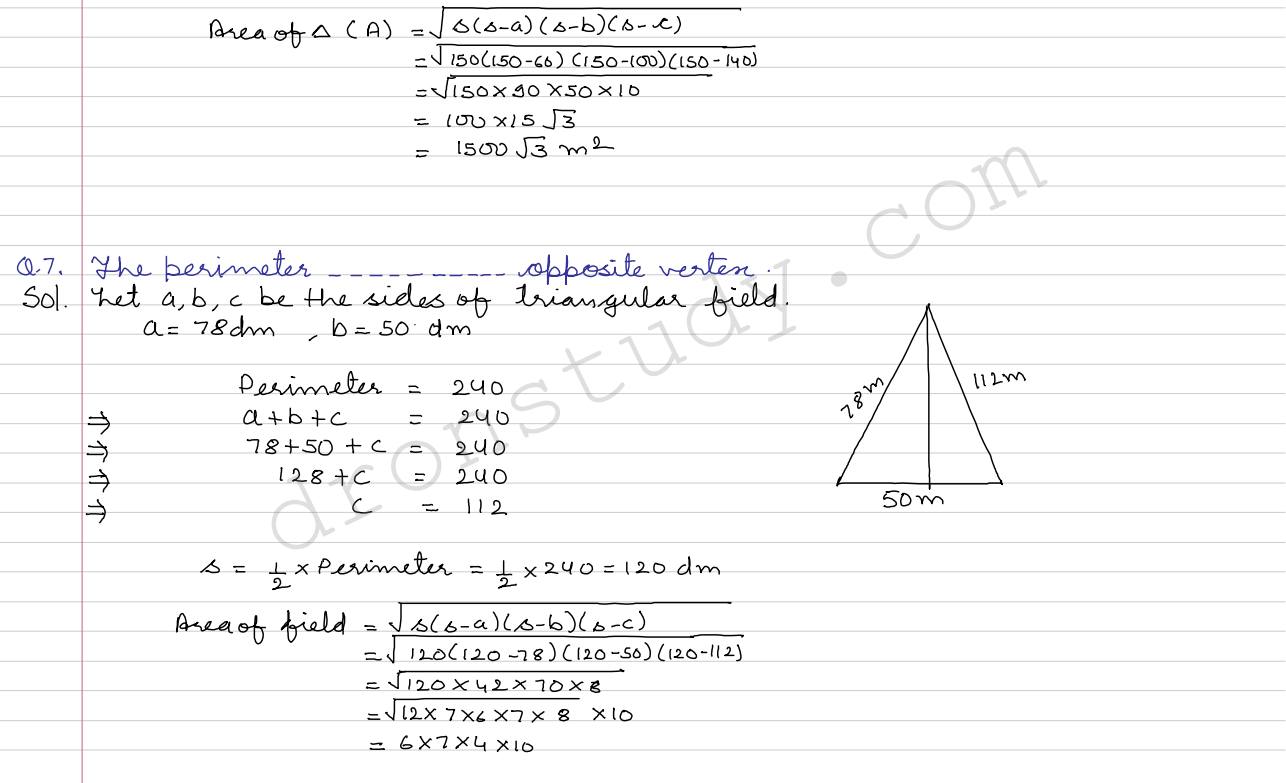 Area of △ (A) = √s(s-a)(s-b)(s-c)
= √150(150-60)(150-100)(150-140)
= √150×90×50×10
= 100×15√3
= 1500√3 m²
Q.7. The perimeter ----------- opposite vertex.
Sol. Let a, b, c be the sides of triangular field.
a = 78dm , b = 50 dm
Perimeter = 240
⇒ a+b+c = 240
⇒ 78+50+c = 240
⇒ 128+c = 240
⇒ c = 112
78m
112m
50m
s = 1/2 × Perimeter = 1/2 × 240 = 120 dm
Area of field = √s(s-a)(s-b)(s-c)
= √120(120-78)(120-50)(120-112)
= √120×42×70×8
= √12×7×6×7×8 ×10
= 6×7×4×10
dronstudy.com